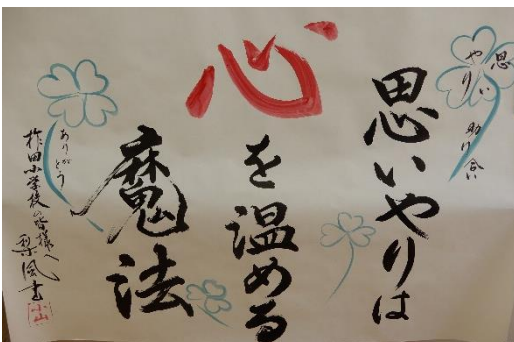 思いやり
助け合い
思いやりは
心を温める
魔法
ありがとう
柞田小学校の皆様へ
梨風書
小山